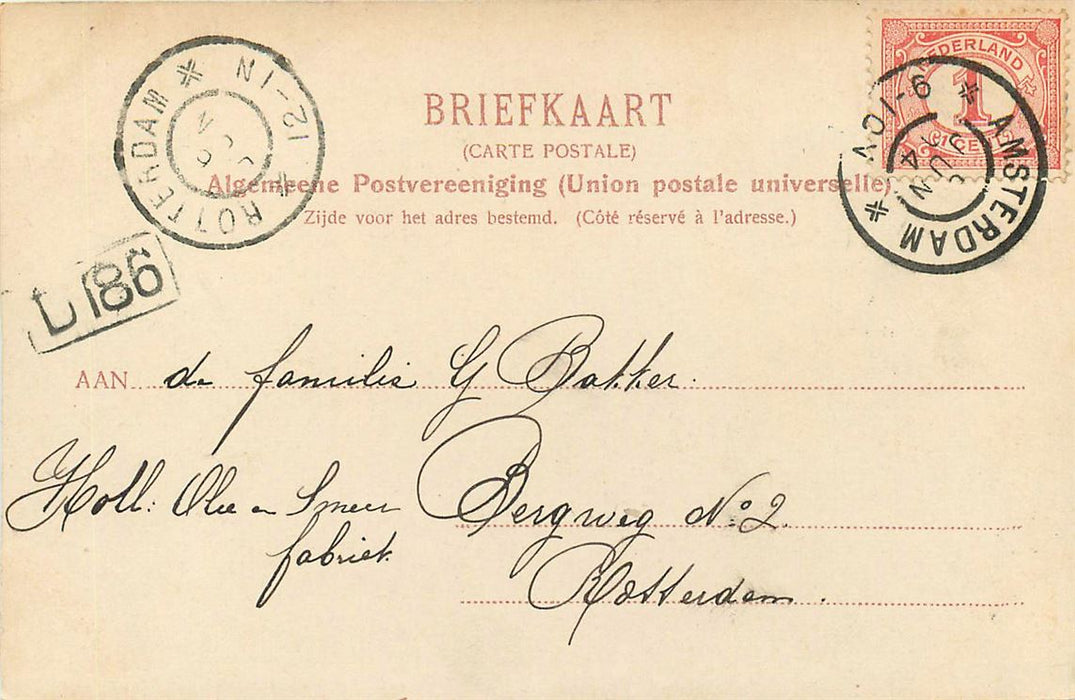 ROTTERDAM * 12-1N *
NEDERLAND
1
CENT
AMSTERDAM * 9-10V *
4 JUN
BRIEFKAART
(CARTE POSTALE)
Algemeene Postvereeniging (Union postale universelle).
Zijde voor het adres bestemd. (Côté réservé à l'adresse.)
L 186
AAN de familie G Bakker.
Holl: Olie en Smeer Bergweg No 2.
fabriek
Rotterdam.